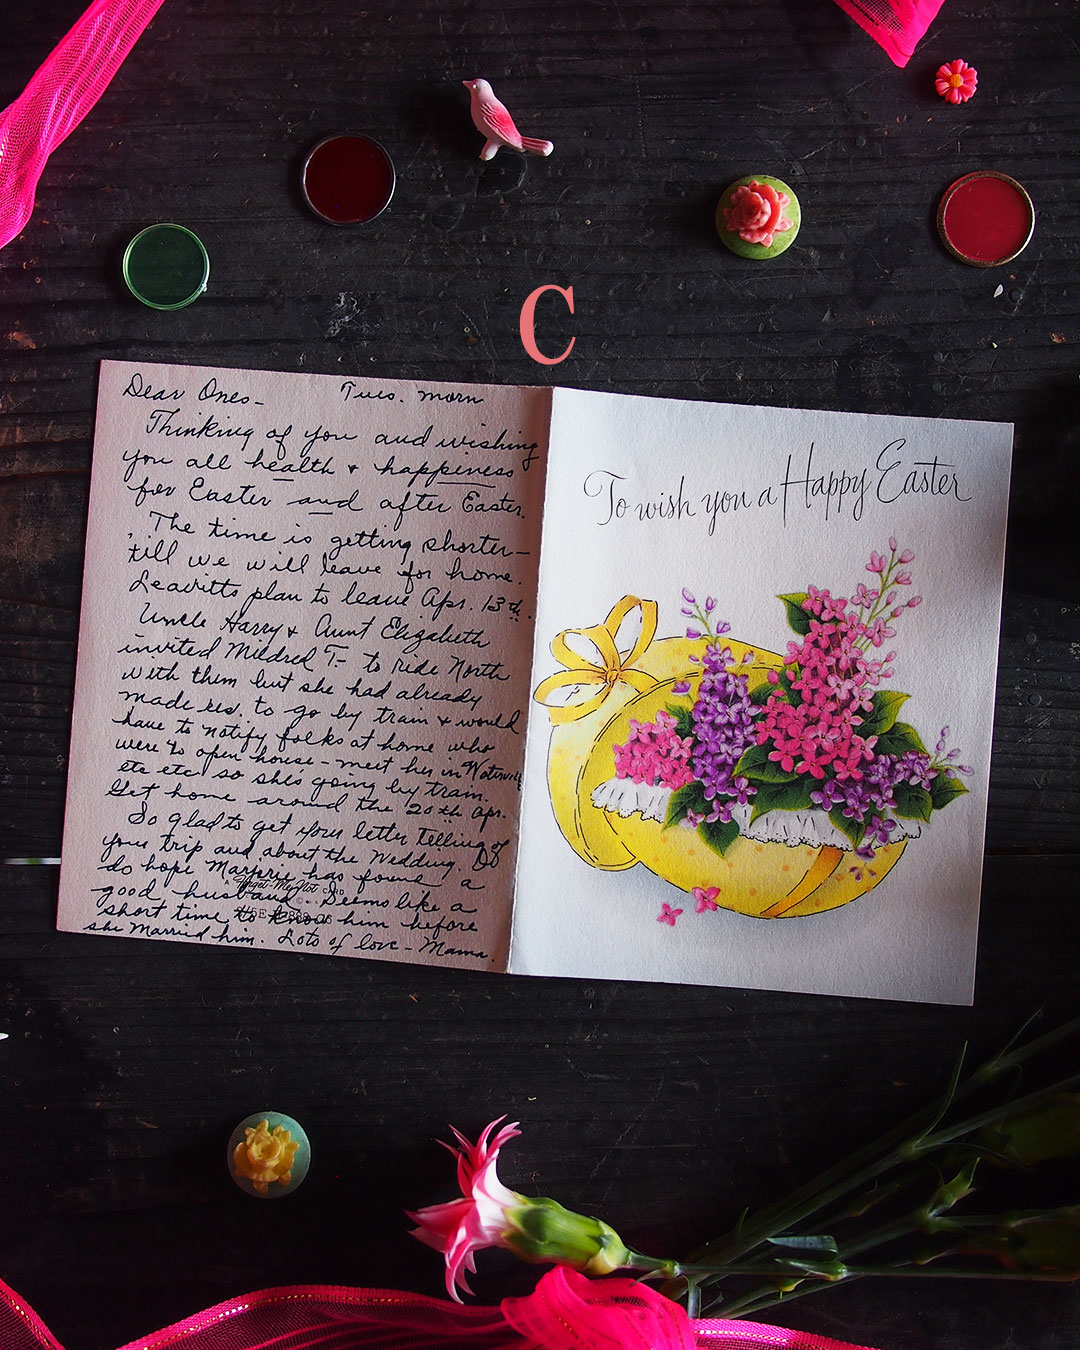 C
Dear Ones- Tues. morn
Thinking of you and wishing
you all health + happiness
for Easter and after Easter.
The time is getting shorter-
till we will leave for home.
Leavitts plan to leave Apr. 13th.
Uncle Harry + Aunt Elizabeth
invited Mildred T- to ride North
with them but she had already
made res. to go by train + would
have to notify folks at home who
were to open house - meet her in
etc etc so she's going by train.
Get home around the 20th Apr.
So glad to get your letter telling of
your trip and about the Wedding. Do
do hope Marjorie has found a
good husband. Seems like a
short time to know him before
she married him. Lots of love - Mama.
Forget-Me-Not CARD
To wish you a Happy Easter